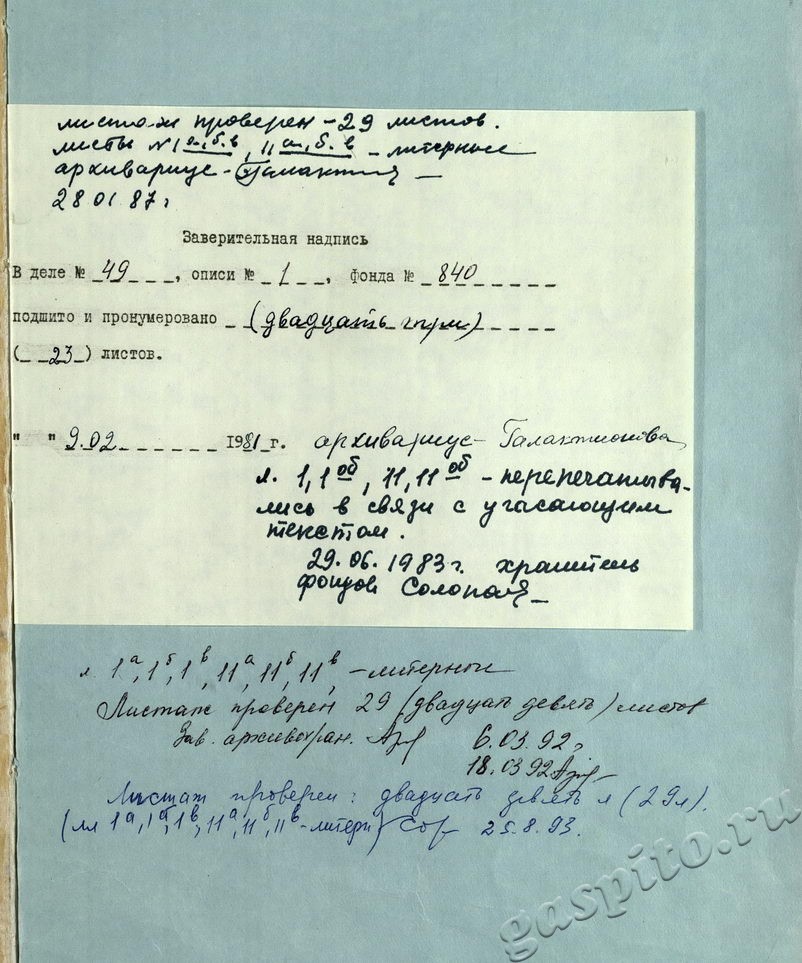 листаж проверен – 29 листов.
листы №1 а, б, в, 11 а, б, в – литерные
архивариус –
28 01 87 г
Заверительная надпись
В деле № 49, описи № 1, фонда № 840
подшито и пронумеровано (двадцать три)
(23) листов.
" " 9.02 1981 г. архивариус – Галактионова
л. 1, 1 об, 11, 11 об – перепечатыва-
лись в связи с угасающим
текстом.
29.06.1983 г. хранитель
фондов
л 1а, 1б, 1в, 11а, 11б, 11в, – литерные
Листаж проверен 29 (двадцать девять) листов
Зав. архивохран. 6.03.92 г
18.03 92
Листаж проверен: двадцать девять л (29л).
(лл 1а, 1а, 1в, 11а, 11б, 11в – литерн) 25.8.93.
gaspito.ru